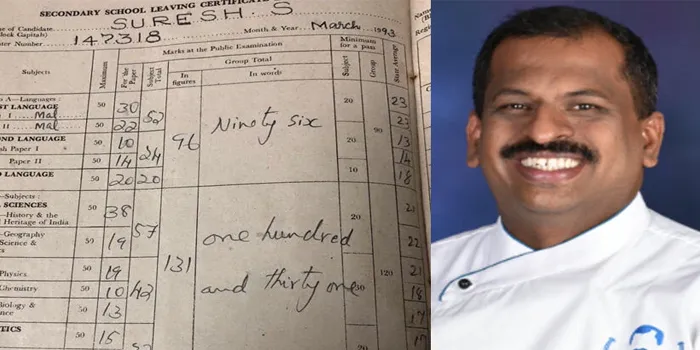 SECONDARY SCHOOL LEAVING CERTIFICATE
of Candidate SURESH. S
lock Capitals)
ter Number 147318 Month & Year March 1993
Marks at the Public Examination
Minimum for a pass
Group Total
Subjects Maximum For the Paper Subject Total In figures In words Subject Group State Average
A—Languages :
ST LANGUAGE
I Mal 50 30 52 20 23
II Mal 50 22 23
ND LANGUAGE 96 Ninety six 90
sh Paper I 50 10 24 20 13
Paper II 50 14 14
LANGUAGE 50 20 20 10 18
—Subjects :
SCIENCES
—History & the 50 38 57 20 21
Heritage of India
—Geography
Science & 50 19 one hundred 22
hysics 50 19 131 120 21
Chemistry 50 10 42 and thirty one 30 18
Biology & 50 13 17
nce
TICS 50 15 17